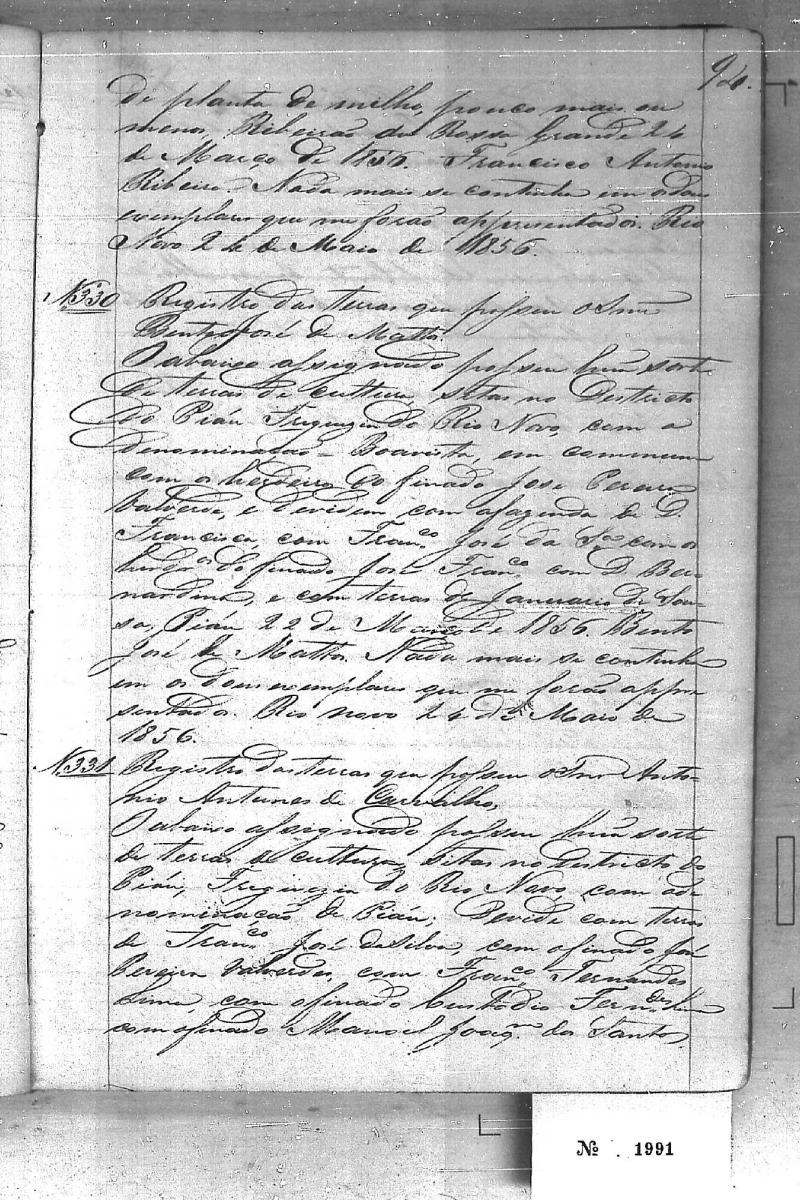 94.
de planta de milho, pouco mais ou
menos, Ribeirão da Rossa Grande 24
de Março de 1856. Francisco Antonio
Ribeiro. Nada mais se continha em os dous
exemplares que me forão appresentados. Rio
Novo 24 de Maio de 1856.
N.330 Registro das terras que possue o Snr
Bento José de Mattos.
O abaixo assignado possue hũa sorte
de terras de cultura, sitas no Destricto
do Piáu Freguezia do Rio Novo, com a
denominação = Boavista, em commum
com os herdeiros do finado José Pereira
Valverde, e devidem com a fazenda de D.
Francisca, com Fran.co José da S.a com os
herdr.os do finado José Fran.co com D. Ber-
nardina, e com terras de Januario de Sou-
sa, Piau 22 de Março de 1856. Bento
José de Mattos. Nada mais se continha
em os dous exemplares que me forão appre-
sentados. Rio novo 24 de Maio de
1856.
N.331 Registro das terras que possue o Snr Anto-
nio Antunes de Carvalho.
O abaixo assignado possue hũa sorte
de terras de cultura, sitas no Destricto do
Piáu, Freguezia do Rio Novo, com a de
nominação de Piáu; Devide com terras
de Fran.co José da Silva, com o finado José
Pereira Valverde, com Fran.co Fernandes
Lima, com o finado Custodio Fern.des Lima
com o finado Manoel Joaq.m dos Santos,
Nº . 1991